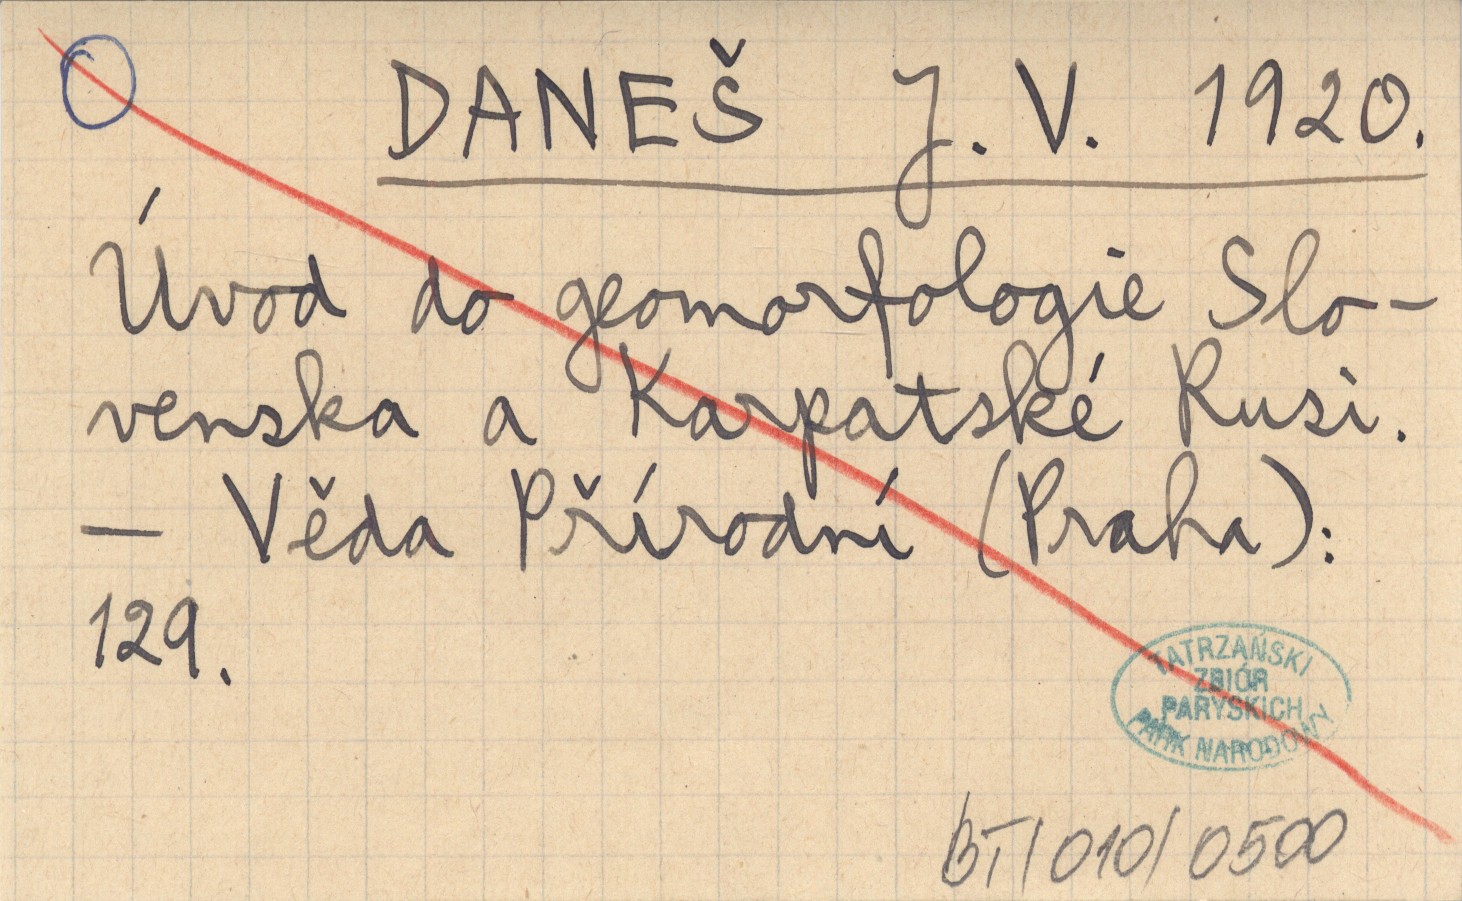 DANEŠ J. V. 1920.
Úvod do geomorfologie Slo-
venska a Karpatské Rusi.
— Věda Přírodní (Praha):
129.
TATRZAŃSKI
ZBIÓR
PARYSKICH
PARK NARODOWY
BT/010/0500